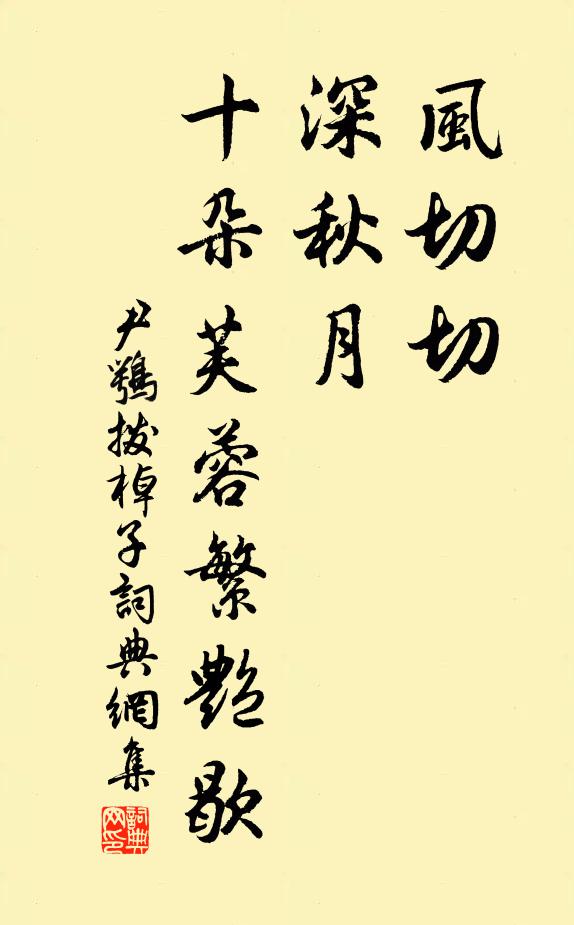 風切切
深秋月
十朵芙蓉繁艷歇
尹鶚撥棹子詞典網集
詞典网印